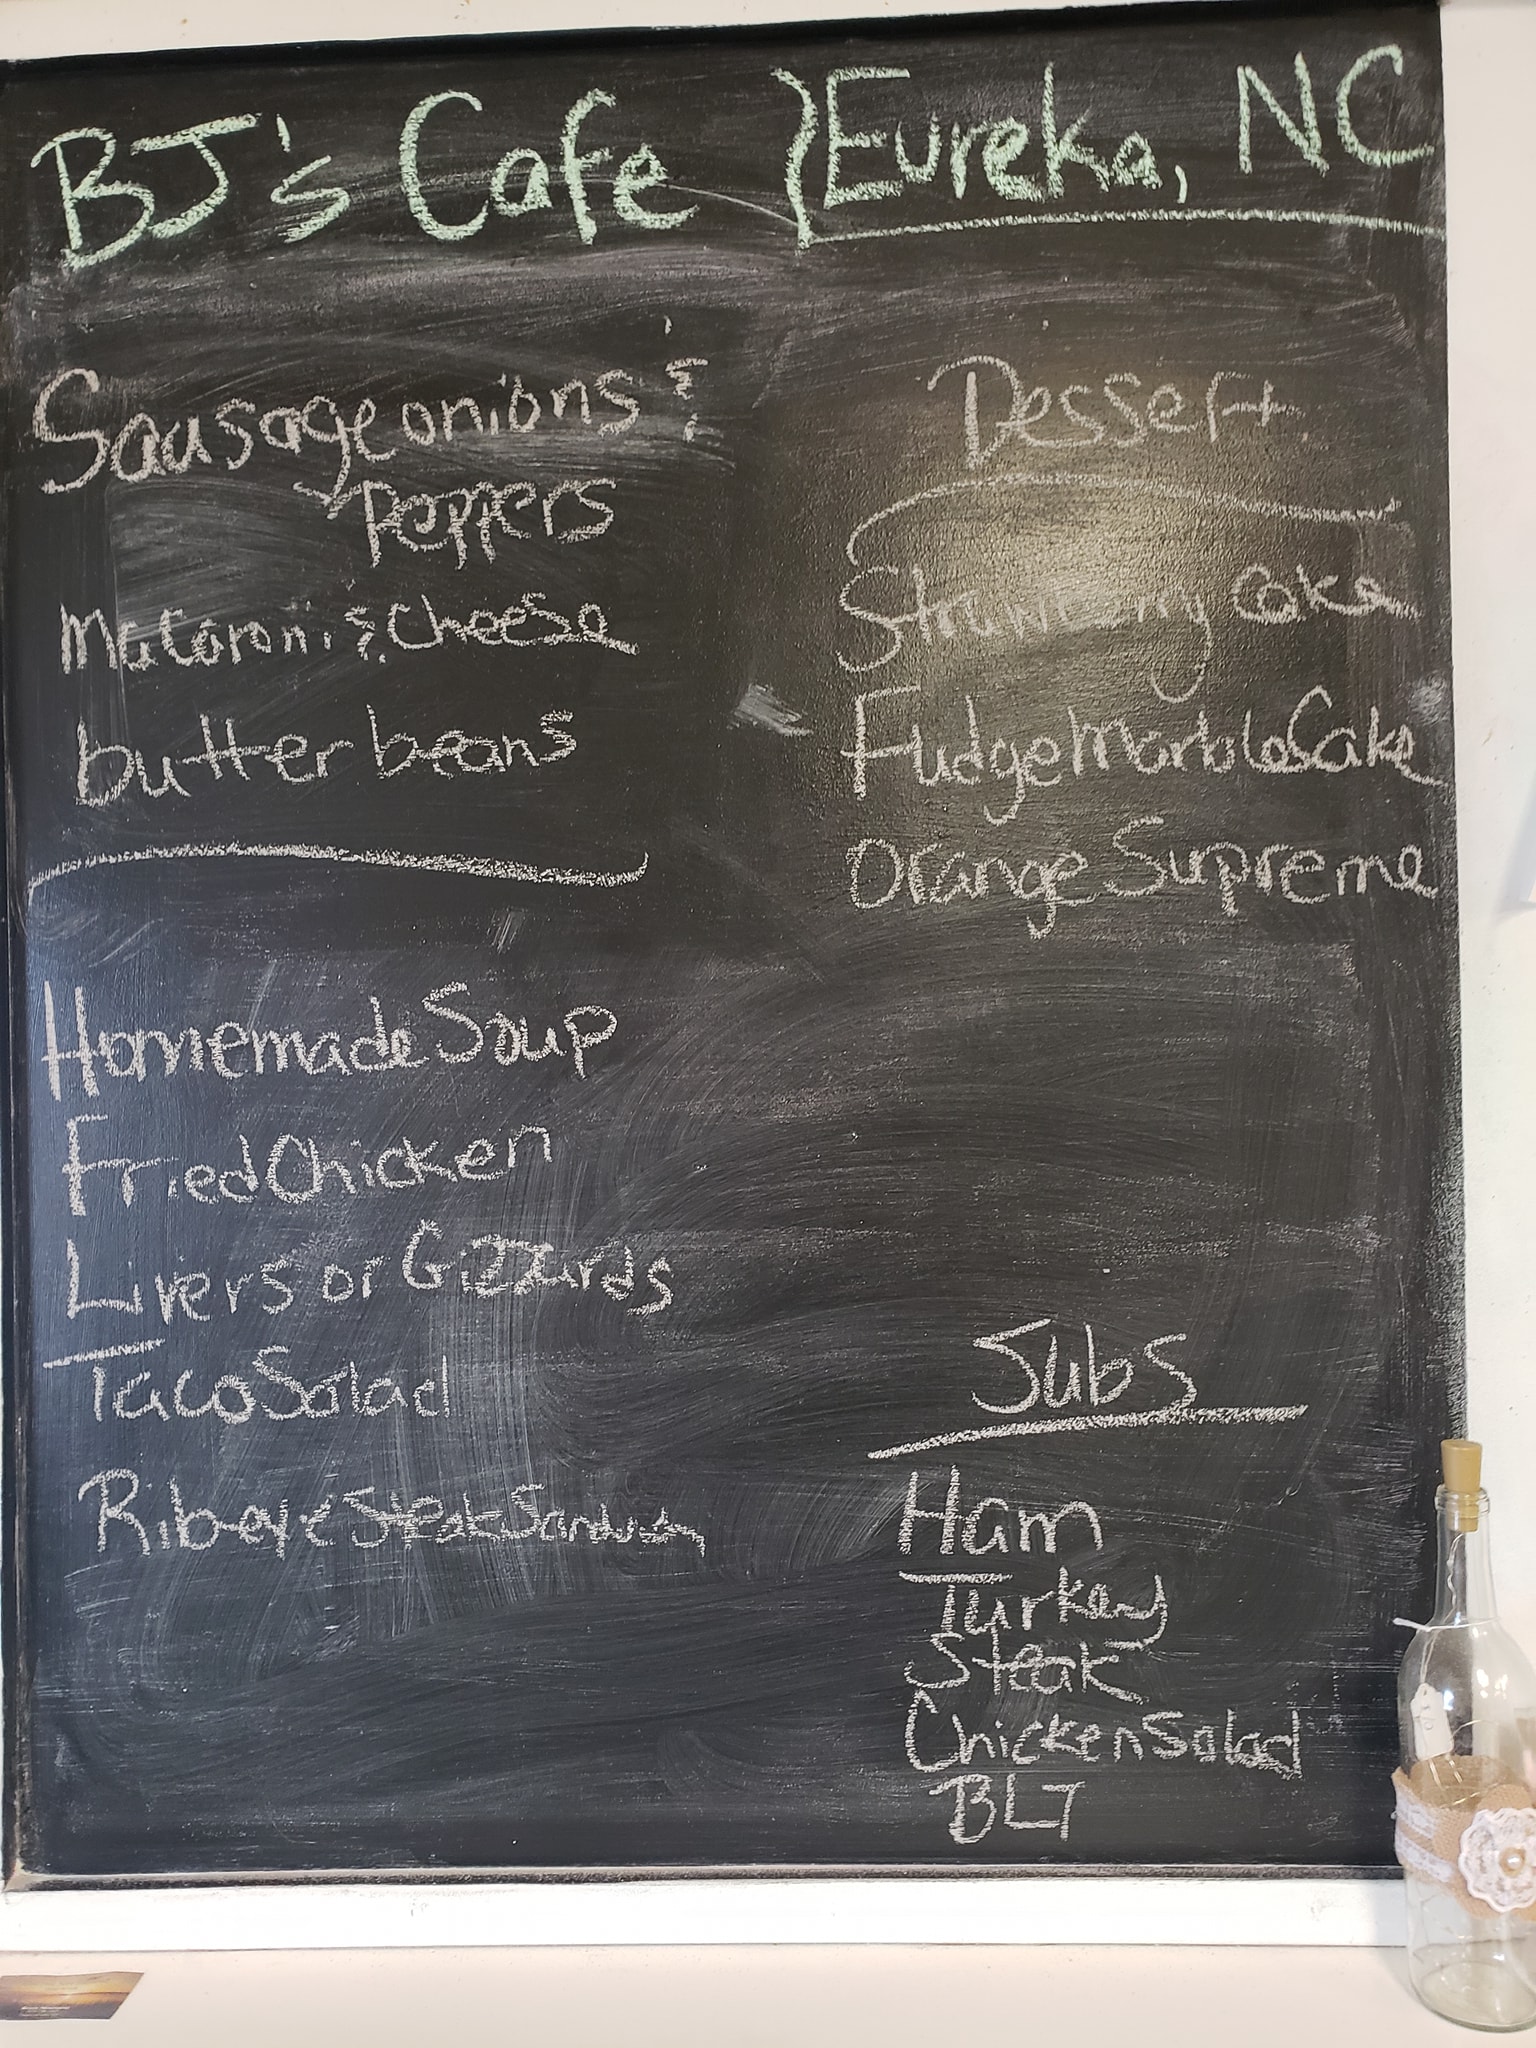 BJ's Cafe
Eureka, NC
Sausage onions &
Peppers
Macaroni & cheese
butter beans
Homemade Soup
Fried Chicken
Livers or Gizzards
Taco Salad
Ribeye Steak Sandwich
Dessert
Strawberry Cake
Fudge Marble Cake
Orange Supreme
Subs
Ham
Turkey
Steak
Chicken Salad
BLT